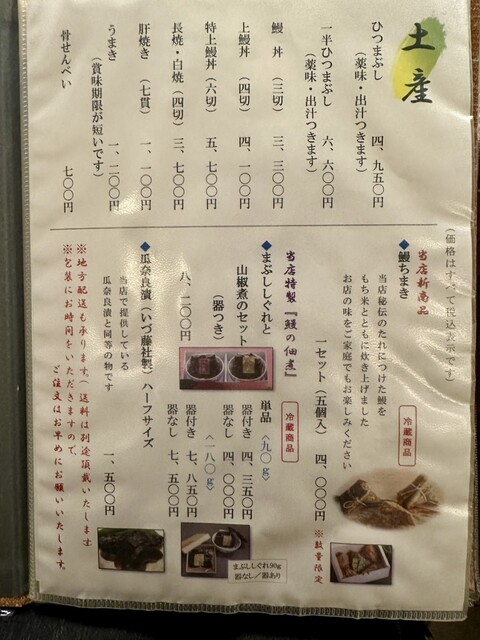 土産
ひつまぶし 四、九五〇円
（薬味・出汁つきます）
一半ひつまぶし 六、六〇〇円
（薬味・出汁つきます）
鰻丼（三切） 三、三〇〇円
上鰻丼（四切） 四、一〇〇円
特上鰻丼（六切） 五、七〇〇円
長焼・白焼（四切） 三、七〇〇円
肝焼き（七貫） 一、一〇〇円
うまき 一、二〇〇円
（賞味期限が短いです）
骨せんべい 七〇〇円
（価格はすべて税込表示です）
当店新商品
◆鰻ちまき 冷蔵商品
当店秘伝のたれにつけた鰻を
もち米とともに炊き上げました
お店の味をご家庭でもお楽しみください
一セット（五個入） 四、〇〇〇円
※数量限定
当店特製『鰻の佃煮』 冷蔵商品
◆まぶししぐれと
山椒煮のセット
（器つき）
八、二〇〇円
単品〈九〇g〉
器付き 四、三五〇円
器なし 四、〇〇〇円
〈一八〇g〉
器付き 七、八五〇円
器なし 七、五〇〇円
まぶししぐれ90g
器なし／器あり
◆瓜奈良漬（いづ藤社製）ハーフサイズ
当店で提供している
瓜奈良漬と同等の物です
一、五〇〇円
※地方配送も承ります。（送料は別途頂戴いたします）
※包装にお時間をいただきますので、
ご注文はお早めにお願いいたします。